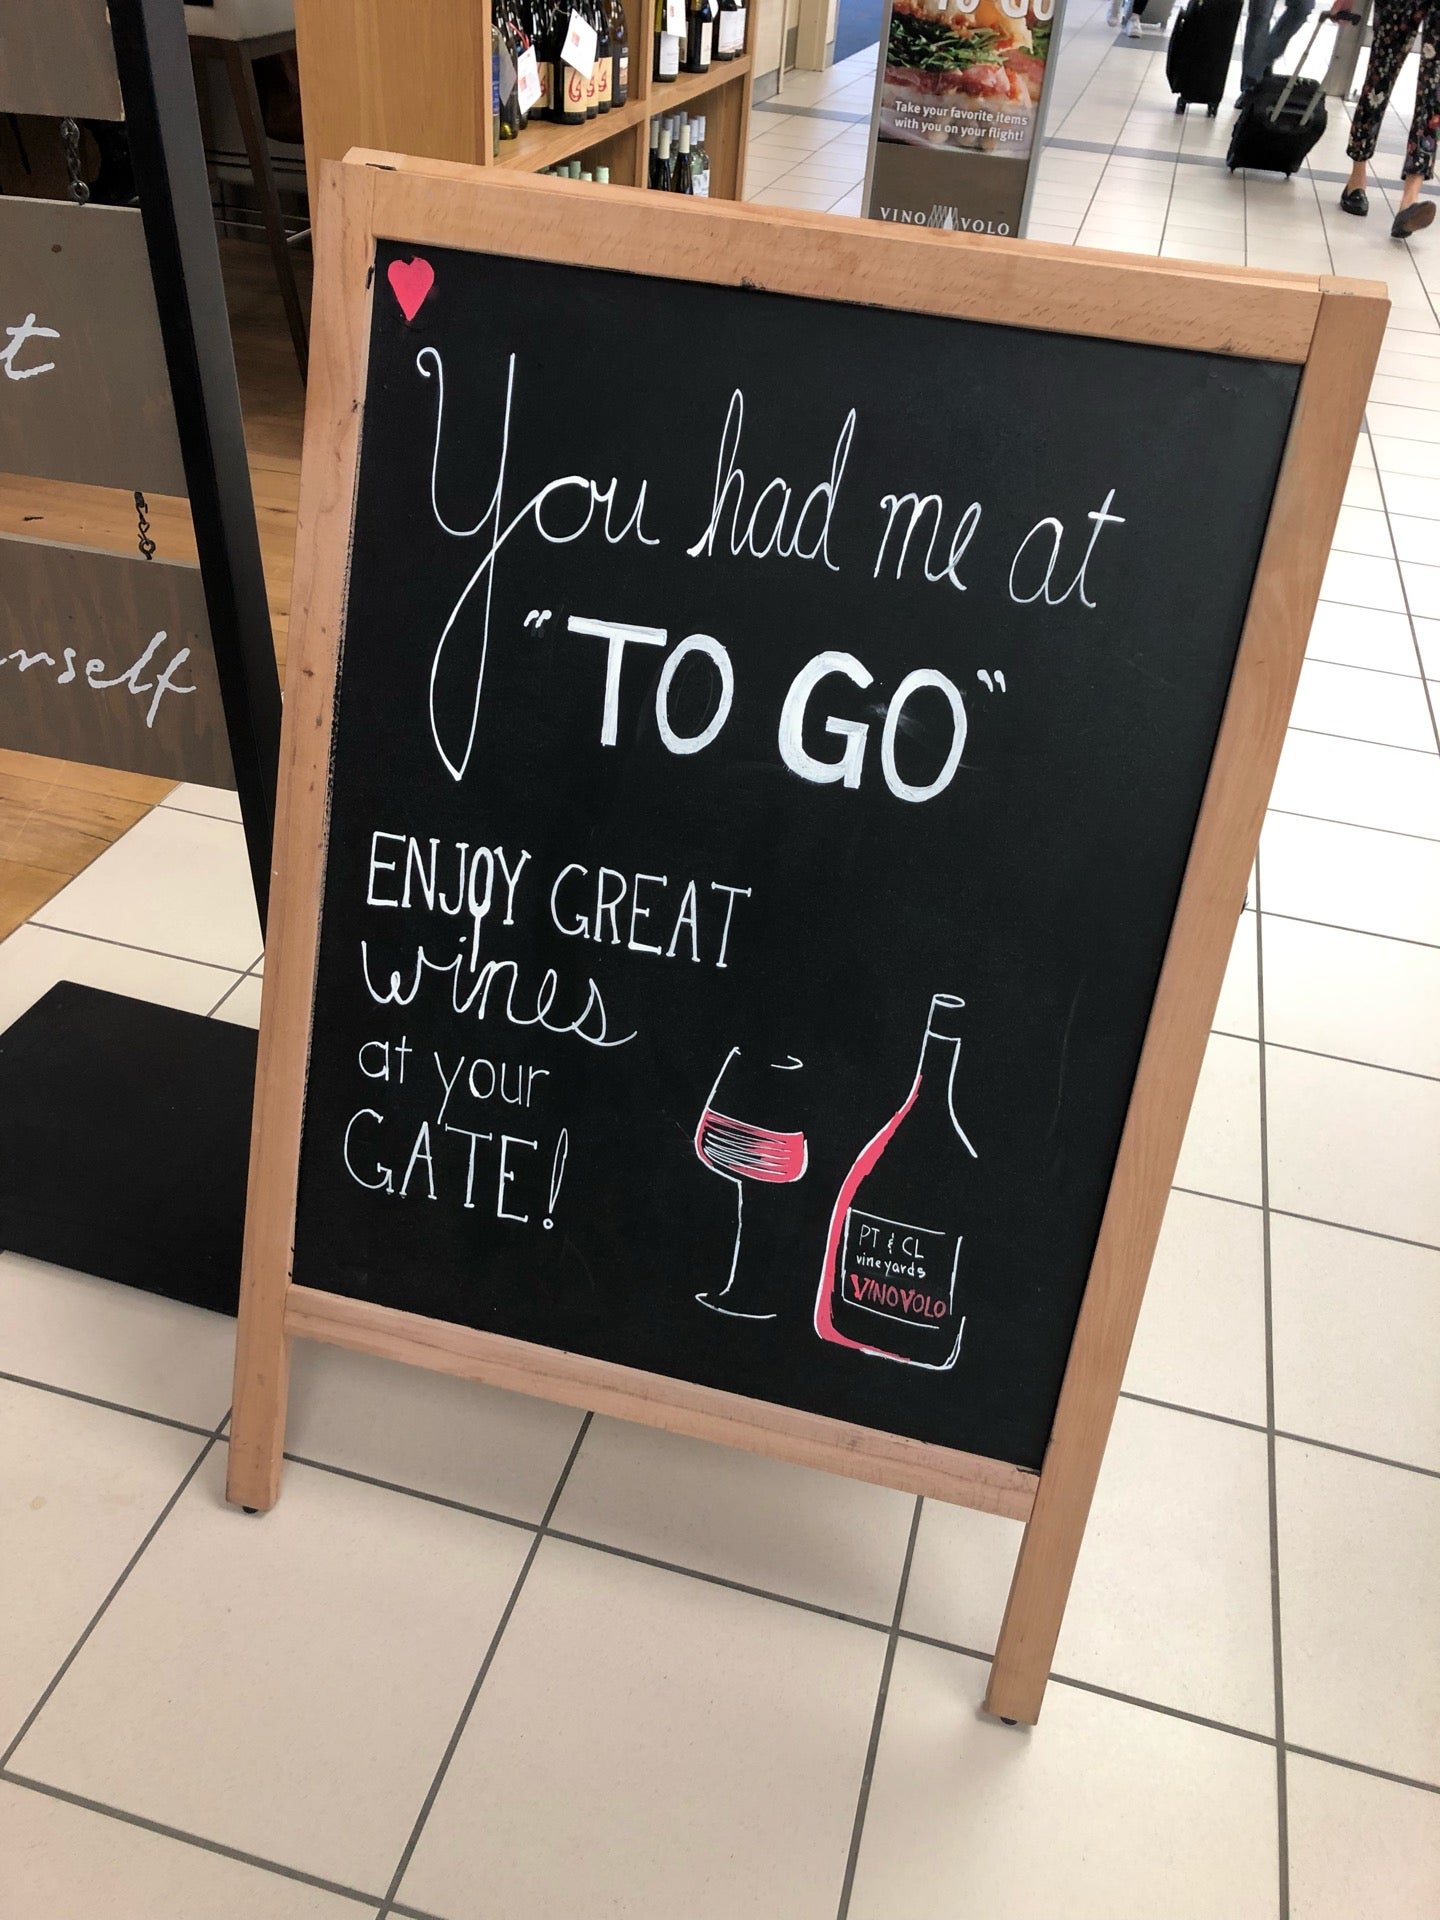 TO GO
Take your favorite items
with you on your flight!
VINO VOLO
t
nself
You had me at
"TO GO"
ENJOY GREAT
wines
at your
GATE!
PT & CL
vineyards
VINO VOLO